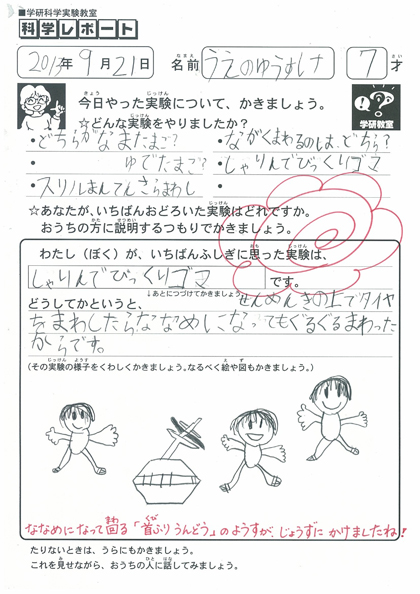 ■学研科学実験教室
科学レポート
2013年9月21日 名前 うえのゆうすけ 7才
今日やった実験について、かきましょう。
☆どんな実験をやりましたか?
・どちらがなまたまご? ・ながくまわるのは、どちら?
・ ゆでたまご? ・しゃりんでびっくりゴマ
・スリルまんてんさらまわし ・
学研教室
☆あなたが、いちばんおどろいた実験はどれですか。
おうちの方に説明するつもりでかきましょう。
わたし(ぼく)が、いちばんふしぎに思った実験は、
しゃりんでびっくりゴマ です。
↓あとにつづけてかきましょう
どうしてかというと、せんめんきの上でタイヤ
をまわしたらななめになってもぐるぐるまわった
からです。
(その実験の様子をくわしくかきましょう。なるべく絵や図もかきましょう。)
ななめになって回る「首ふりうんどう」のようすが、じょうずにかけましたね!
たりないときは、うらにもかきましょう。
これを見せながら、おうちの人に話してみましょう。